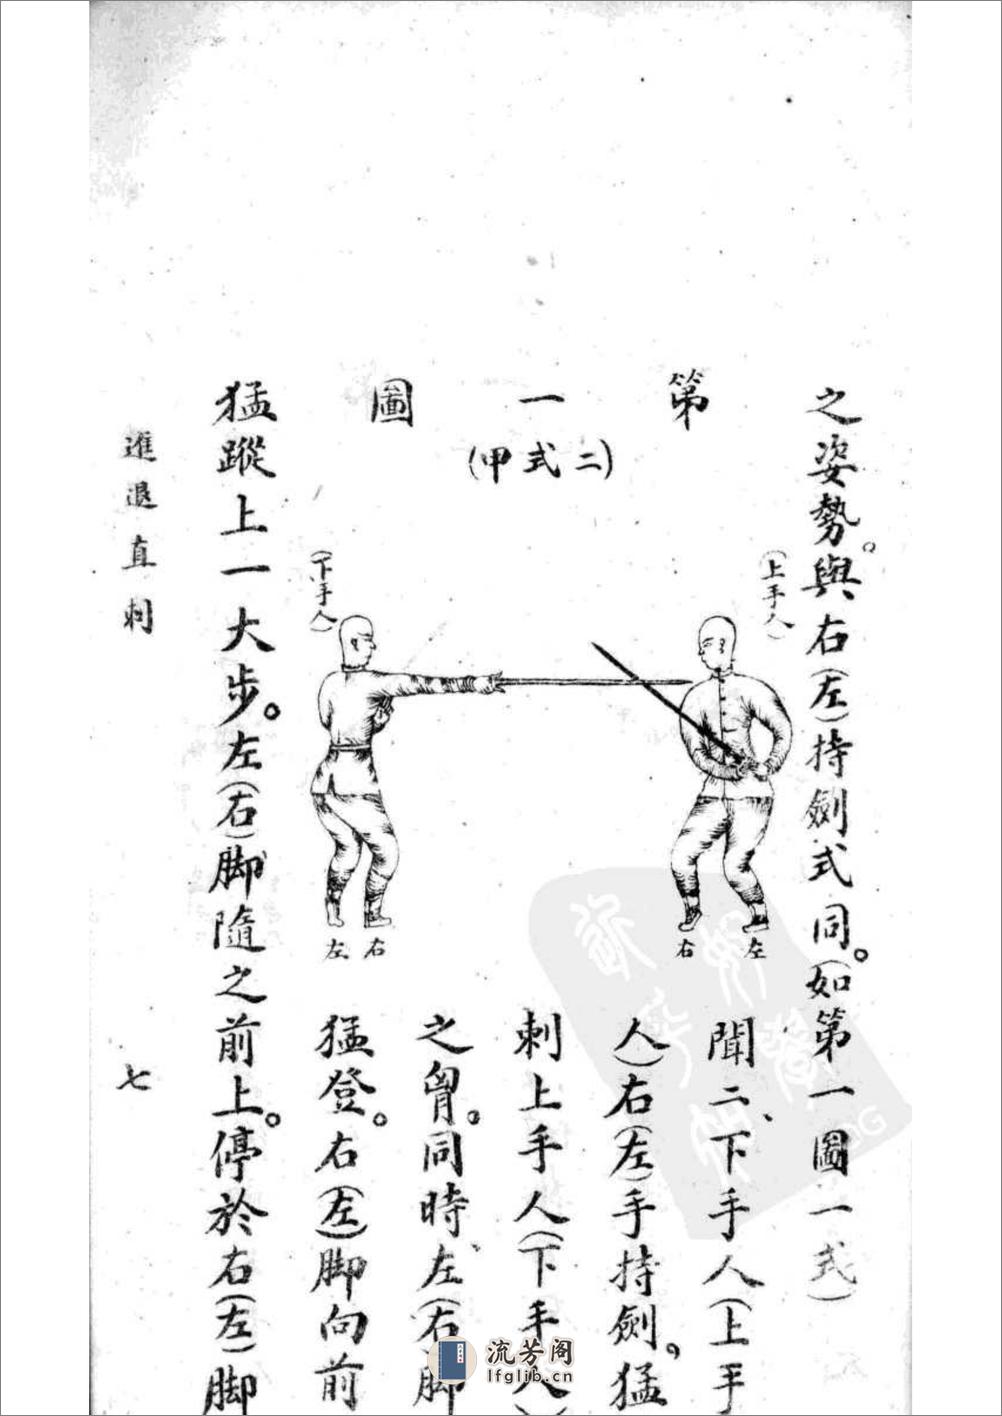 之姿勢。與右(左)持劍式同。(如第一圖一式)
第一圖
(二式甲)
(上手人)
(下手人)
右 左
左 右
聞二、下手人(上手
人)右(左)手持劍。猛
刺上手人(下手人)
之胷。同時、左(右)脚
猛登。右(左)脚向前
猛蹤上一大步。左(右)脚隨之前上。停於右(左)脚
進退直刺
七
流芳阁
lfglib.cn